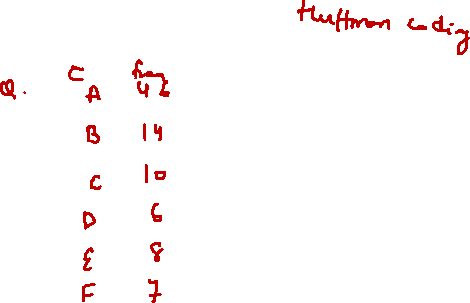 Huffman coding
Q. C freq
A 45
B 14
C 10
D 6
E 8
F 7